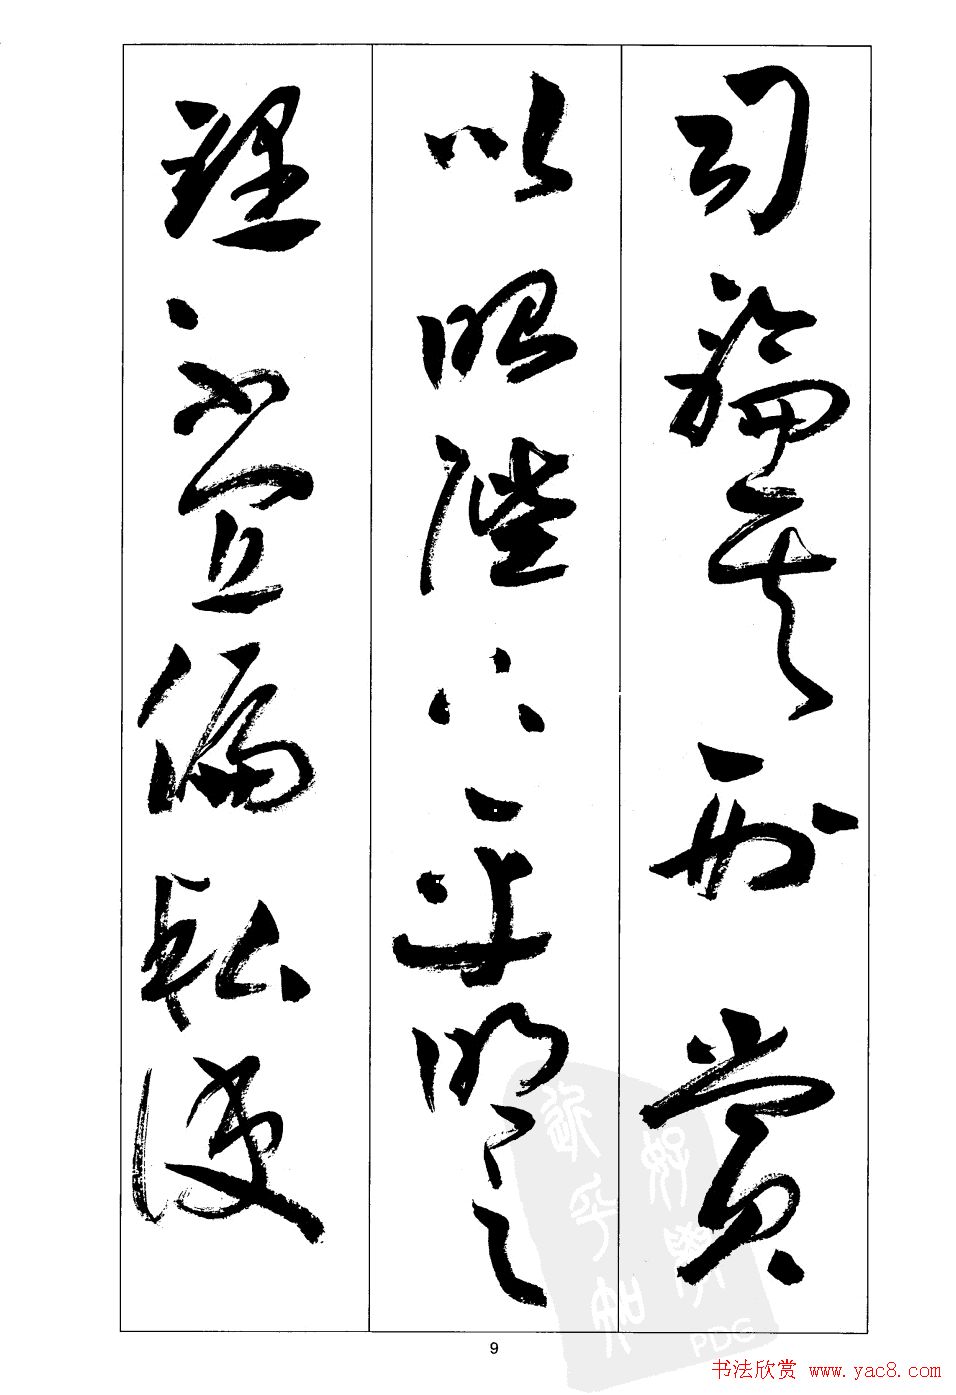 司論其刑賞
以昭陛下平明之
理不宜偏私使
9
书法欣赏 www.yac8.com